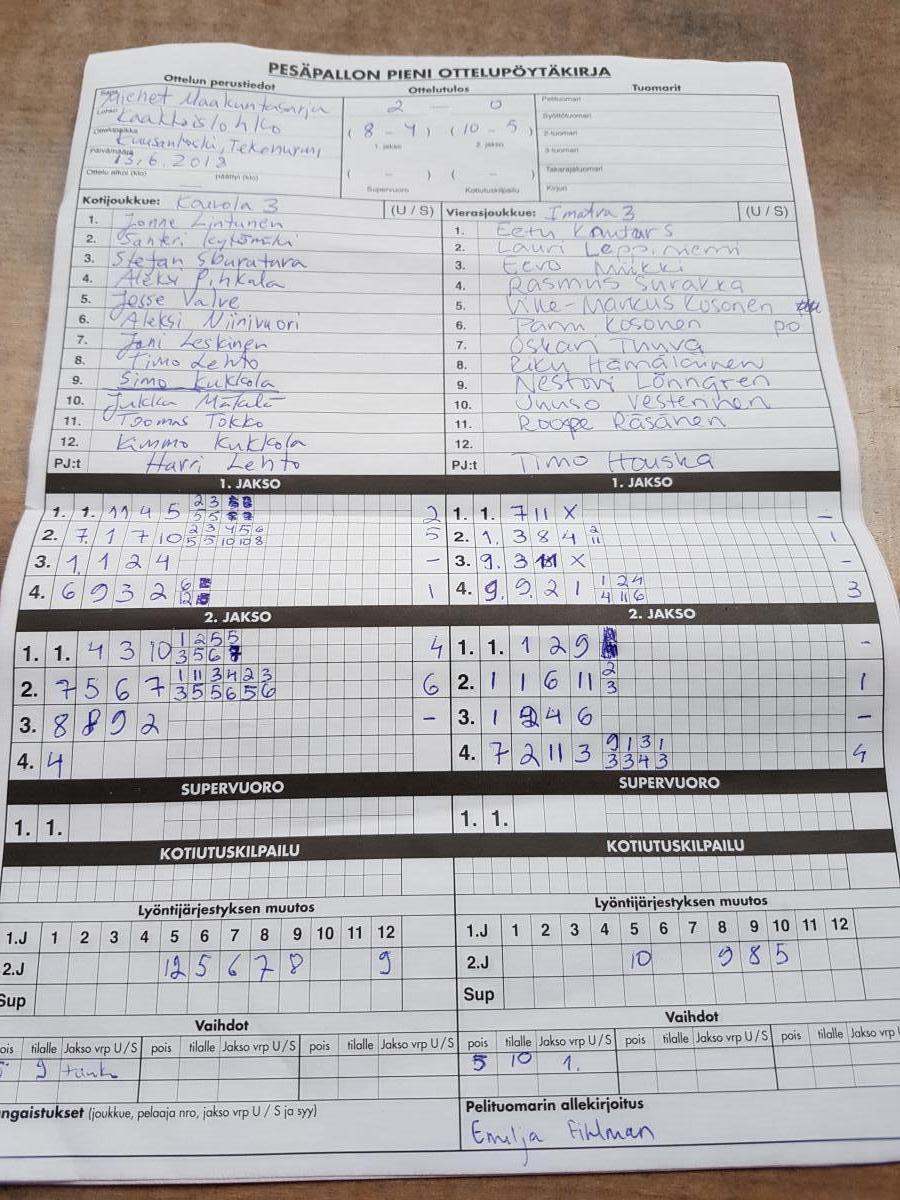 PESÄPALLON PIENI OTTELUPÖYTÄKIRJA
Ottelun perustiedot
Ottelutulos
Tuomarit
Sarja Miehet Maakuntasarja
Lohko Kaakkoislohko
Ottelupaikka Kuusankoski, Tekonurmi
Päivämäärä 13.6.2018
Ottelu alkoi (klo) päättyi (klo)
2 — 0
( 8 - 4 ) ( 10 - 5 )
1. jakso 2. jakso
( - ) ( - )
Supervuoro Kotiutuskilpailu
Pelituomari
Syöttötuomari
2-tuomari
3-tuomari
Takarajatuomari
Kirjuri
Kotijoukkue: Kouvola 3 (U / S)
1. Jonne Lintunen
2. Santeri Kytömäki
3. Stefan Sburatura
4. Aleksi Pihkala
5. Jesse Valve
6. Aleksi Niinivuori
7. Jani Leskinen
8. Timo Lehto
9. Simo Kukkola
10. Jukka Mätälä
11. Toomas Tokko
12. Kimmo Kukkola
PJ:t Harri Lehto
Vierasjoukkue: Imatra 3 (U / S)
1. Eetu Kautars
2. Lauri Leppiniemi
3. Eevo Miikki
4. Rasmus Surakka
5. Ville-Markus Kosonen
6. Panu Kosonen po
7. Oskari Thuva
8. Riku Hämäläinen
9. Nestori Lönngren
10. Juuso Vesterinen
11. Roope Räsänen
12.
PJ:t Timo Houska
1. JAKSO
1. 1. 11 4 5 2 3 2
5 5
2. 7 1 7 10 2 3 4 5 6 5
5 5 10 10 8
3. 1 1 2 4 –
4. 6 9 3 2 6 1
12
1. JAKSO
1. 1. 7 11 X –
2. 1. 3 8 4 2 1
11
3. 9. 3 X –
4. 9. 9. 2 1 1 2 4 3
4 11 6
2. JAKSO
1. 1. 4 3 10 1 2 5 5 4
3 5 6 7
2. 7 5 6 7 1 11 3 4 2 3 6
3 5 5 6 5 6
3. 8 8 9 2 –
4. 4
2. JAKSO
1. 1. 1 2 9 –
2. 1 1 6 11 2 1
3
3. 1 9 4 6 –
4. 7 2 11 3 9 1 3 1 4
3 3 4 3
SUPERVUORO
1. 1.
SUPERVUORO
1. 1.
KOTIUTUSKILPAILU
KOTIUTUSKILPAILU
Lyöntijärjestyksen muutos
1.J 1 2 3 4 5 6 7 8 9 10 11 12
2.J 12 5 6 7 8 9
Sup
Lyöntijärjestyksen muutos
1.J 1 2 3 4 5 6 7 8 9 10 11 12
2.J 10 9 8 5
Sup
Vaihdot
pois tilalle Jakso vrp U / S pois tilalle Jakso vrp U / S pois tilalle Jakso vrp U / S
9
Vaihdot
pois tilalle Jakso vrp U / S pois tilalle Jakso vrp U / S pois tilalle Jakso vrp
5 10 1.
ngaistukset (joukkue, pelaaja nro, jakso vrp U / S ja syy)
Pelituomarin allekirjoitus
Emilja Fihlman